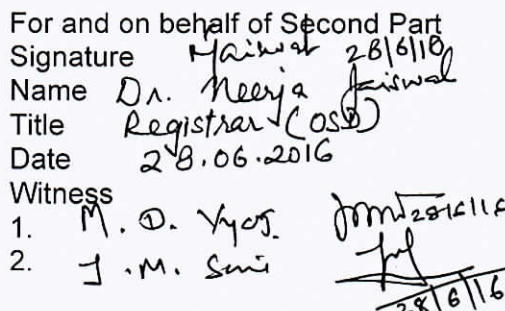 For and on behalf of Second Part
Signature Jaiswal 28/6/16
Name Dr. Neerja Jaiswal
Title Registrar (OSD)
Date 28.06.2016
Witness
1. M. D. Vyas 28/6/16
2. J. M. Soni
28/6/16